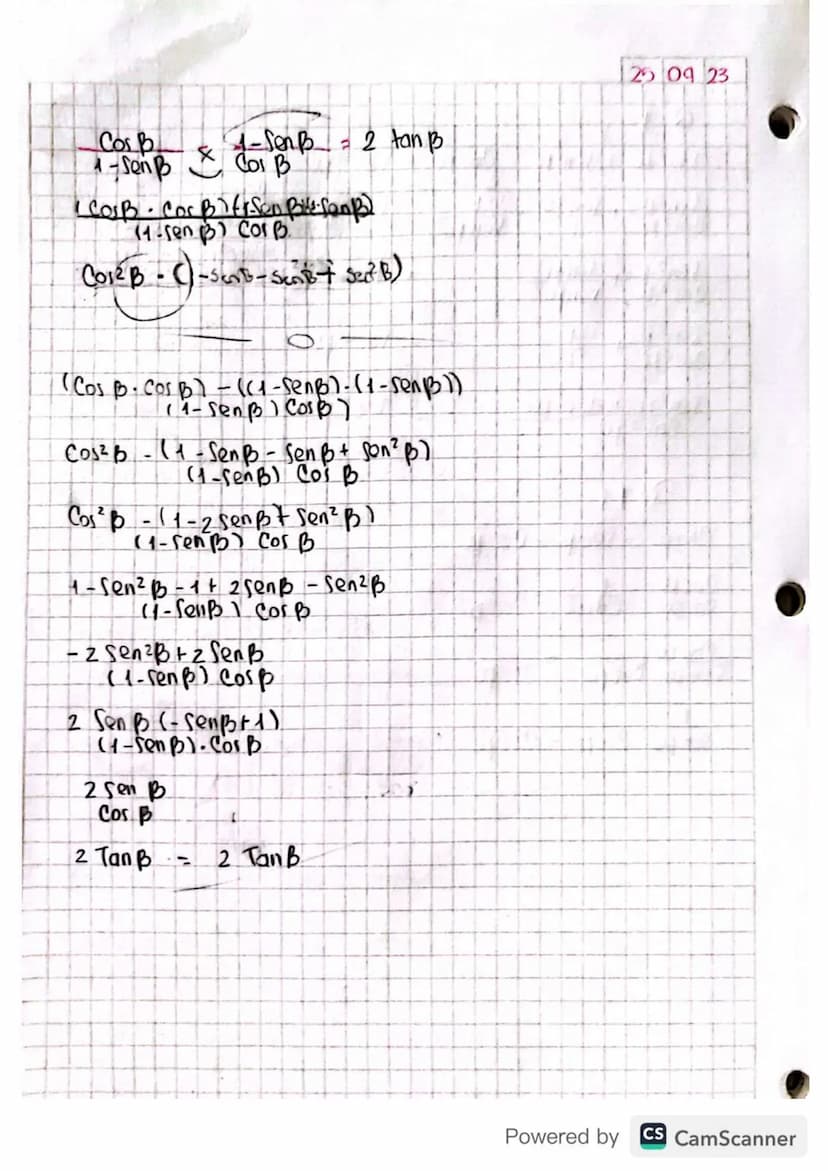 25 09 23
Cos β / 1-Senβ × 1-Senβ / Cos β = 2 tan β
(Cosβ · Cosβ)
(1-senβ) Cosβ
Cos²β - (
(Cos β · Cos β) - ((1-senβ) · (1-senβ))
(1-senβ) Cosβ)
Cos²β - (1 - Senβ - Senβ + Sen²β)
(1-senβ) Cos β
Cos²β - (1-2 senβ + Sen²β)
(1-senβ) Cos β
1-Sen²β - 1 + 2senβ - Sen²β
(1-Senβ) Cosβ
-2 Sen²β + 2 Senβ
(1-senβ) Cosβ
2 Senβ (-Senβ+1)
(1-Senβ) · Cosβ
2 sen β
Cos β
2 Tanβ = 2 Tanβ
Powered by CS CamScanner